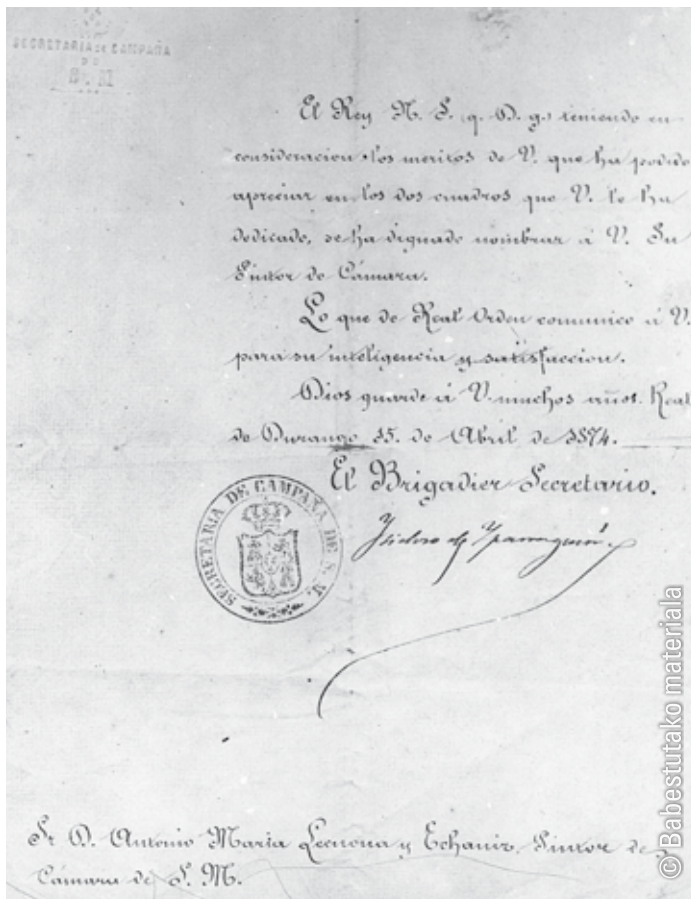 SECRETARIA DE CAMPAÑA
DE
S. M.
El Rey N. S. (q. D. g.) teniendo en
consideracion los meritos de V. que ha podido
apreciar en los dos cuadros que V. le ha
dedicado, se ha dignado nombrar á V. Su
Pintor de Cámara.
Lo que de Real Orden comunico á V.
para su inteligencia y satisfaccion.
Dios guarde á V. muchos años. Real
de Durango 15. de Abril de 1874.
El Brigadier Secretario.
Isidoro de Iparraguirre
SECRETARIA DE CAMPAÑA DE S. M.
Sr D. Antonio María Lecuona y Echaniz. Pintor de
Cámara de S. M.
© Babestutako materiala